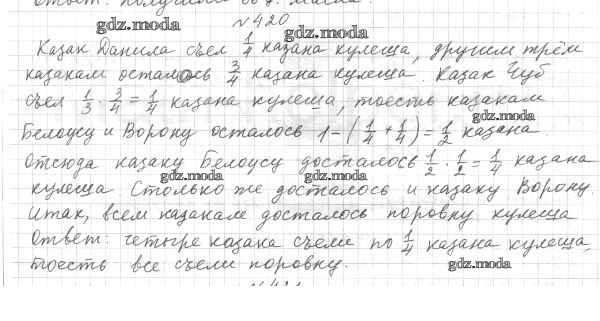 Ответ: получили
gdz.moda
№420
gdz.moda
Казак Данила съел 1/4 казана кулеша, другим трём
казакам осталось 3/4 казана кулеша. Казак Чуб
съел 1/3 · 3/4 = 1/4 казана кулеша, тоесть казакам
gdz.moda
Белоусу и Ворону осталось 1-(1/4+1/4)=1/2 казана.
Отсюда казаку Белоусу досталось 1/2 · 1/2 = 1/4 казана
gdz.moda gdz.moda
кулеша. Столько же досталось и казаку Ворону.
Итак, всем казакам досталось поровну кулеша
Ответ: четыре казака съели по 1/4 казана кулеша,
тоесть все съели поровну.
gdz.moda